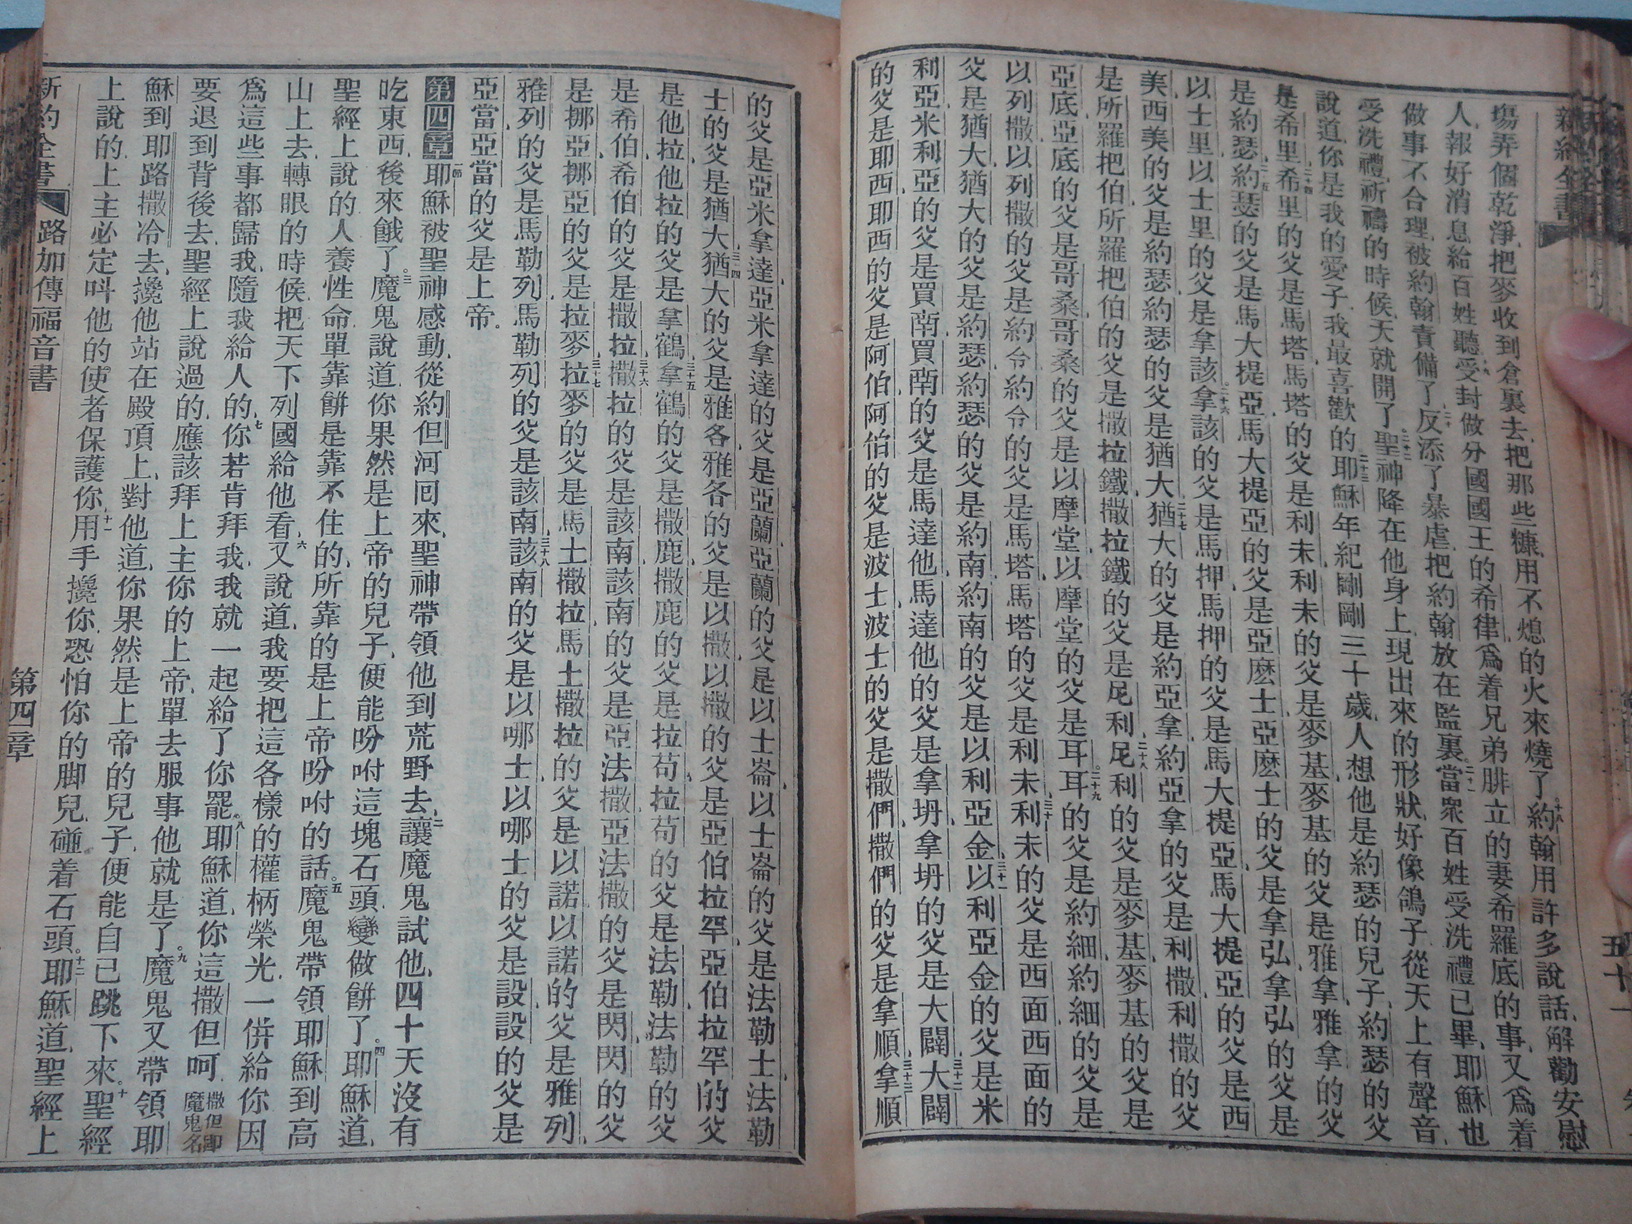 新約全書
五十一
塲弄個乾淨把麥收到倉裏去把那些糠用不熄的火來燒了約翰用許多說話解勸安慰
人報好消息給百姓聽受封做分國國王的希律爲着兄弟腓立的妻希羅底的事又爲着
做事不合理被約翰責備了反添了暴虐把約翰放在監裏當衆百姓受洗禮已畢耶穌也
受洗禮祈禱的時候天就開了聖神降在他身上現出來的形狀好像鴿子從天上有聲音
說道你是我的愛子我最喜歡的耶穌年紀剛剛三十歲人想他是約瑟的兒子約瑟的父
是希里希里的父是馬塔馬塔的父是利未利未的父是麥基麥基的父是雅拿雅拿的父
是約瑟約瑟的父是馬大提亞馬大提亞的父是亞麽士亞麽士的父是拿弘拿弘的父是
以士里以士里的父是拿該拿該的父是馬押馬押的父是馬大提亞馬大提亞的父是西
美西美的父是約瑟約瑟的父是猶大猶大的父是約亞拿約亞拿的父是利撒利撒的父
是所羅把伯所羅把伯的父是撒拉鐵撒拉鐵的父是尼利尼利的父是麥基麥基的父是
亞底亞底的父是哥桑哥桑的父是以摩堂以摩堂的父是耳耳的父是約細約細的父是
以列撒以列撒的父是約令約令的父是馬塔馬塔的父是利未利未的父是西面西面的
父是猶大猶大的父是約瑟約瑟的父是約南約南的父是以利亞金以利亞金的父是米
利亞米利亞的父是買南買南的父是馬達他馬達他的父是拿坍拿坍的父是大闢大闢
的父是耶西耶西的父是阿伯阿伯的父是波士波士的父是撒們撒們的父是拿順拿順
的父是亞米拿達亞米拿達的父是亞蘭亞蘭的父是以士崙以士崙的父是法勒士法勒
士的父是猶大猶大的父是雅各雅各的父是以撒以撒的父是亞伯拉罕亞伯拉罕的父
是他拉他拉的父是拿鶴拿鶴的父是撒鹿撒鹿的父是拉苟拉苟的父是法勒法勒的父
是希伯希伯的父是撒拉撒拉的父是該南該南的父是亞法撒亞法撒的父是閃閃的父
是挪亞挪亞的父是拉麥拉麥的父是馬土撒拉馬土撒拉的父是以諾以諾的父是雅列
雅列的父是馬勒列馬勒列的父是該南該南的父是以哪士以哪士的父是設設的父是
亞當亞當的父是上帝
第四章 耶穌被聖神感動從約但河回來聖神帶領他到荒野去讓魔鬼試他四十天沒有
吃東西後來餓了魔鬼說道你果然是上帝的兒子便能吩咐這塊石頭變做餅了耶穌道
聖經上說的人養性命單靠餅是靠不住的所靠的是上帝吩咐的話魔鬼帶領耶穌到高
山上去轉眼的時候把天下列國給他看又說道我要把這各樣的權柄榮光一倂給你因
爲這些事都歸我隨我給人的你若肯拜我我就一起給了你罷耶穌道你這撒但呵 撒但卽魔鬼名
要退到背後去聖經上說過的應該拜上主你的上帝單去服事他就是了魔鬼又帶領耶
穌到耶路撒冷去攙他站在殿頂上對他道你果然是上帝的兒子便能自己跳下來聖經
上說的上主必定呌他的使者保護你用手攙你恐怕你的脚兒碰着石頭耶穌道聖經上
新約全書 路加傳福音書 第四章